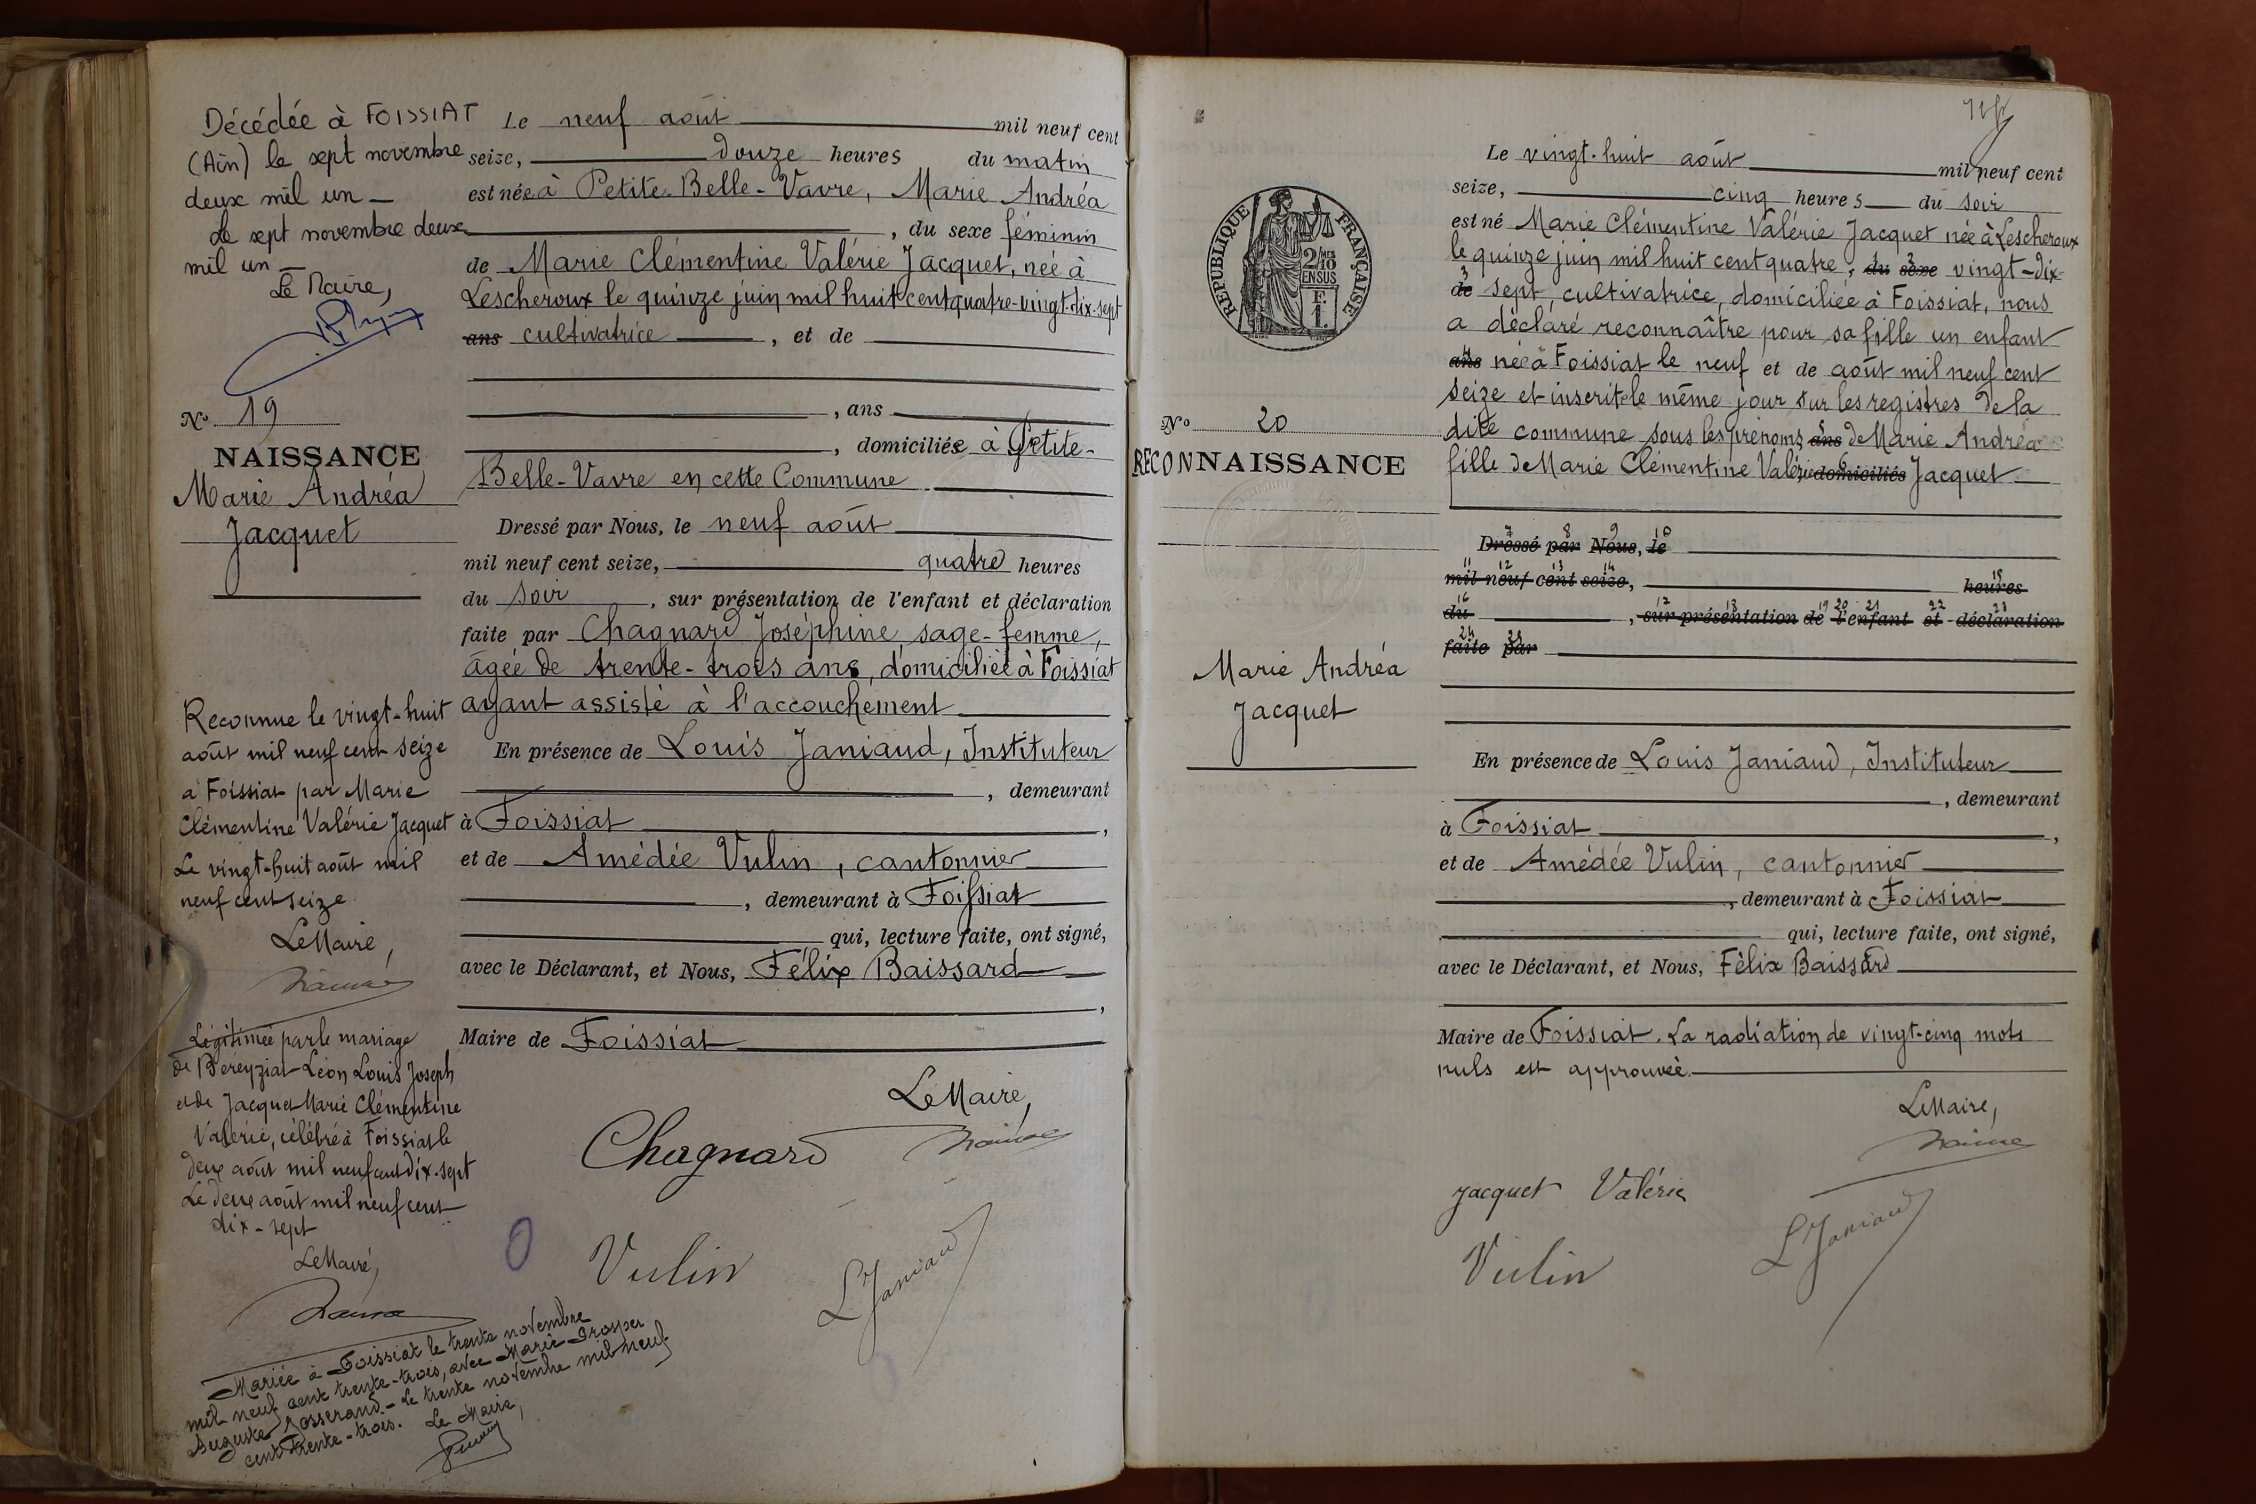 Décédée à FOISSIAT
(Ain) le sept novembre
deux mil un _
Le sept novembre deux
mil un _
Le Maire,
No 19
NAISSANCE
Marie Andréa
Jacquet
Reconnue le vingt-huit
août mil neuf cent seize
à Foissiat par Marie
Clémentine Valérie Jacquet
Le vingt-huit août mil
neuf cent seize
Le Maire,
Légitimée par le mariage
de Béreyziat Léon Louis Joseph
et de Jacquet Marie Clémentine
Valérie, célébré à Foissiat le
deux août mil neuf cent dix-sept
Le deux août mil neuf cent
dix-sept
Le Maire,
Mariée à Foissiat le trente novembre
mil neuf cent trente-trois, avec Marie Prosper
Auguste Rosserand. - Le trente novembre mil neuf
cent trente-trois. Le Maire,
Le neuf août mil neuf cent
seize, douze heures du matin
est née à Petite-Belle-Vavre, Marie Andréa
, du sexe féminin
de Marie Clémentine Valérie Jacquet, née à
Lescheroux le quinze juin mil huit cent quatre-vingt-dix-sept
ans cultivatrice , et de
, ans
, domiciliée à Petite-
Belle-Vavre en cette Commune
Dressé par Nous, le neuf août
mil neuf cent seize, quatre heures
du soir , sur présentation de l'enfant et déclaration
faite par Chagnard Joséphine sage-femme,
âgée de trente-trois ans, domiciliée à Foissiat
ayant assisté à l'accouchement
En présence de Louis Janiaud, Instituteur
, demeurant
à Foissiat ,
et de Amédée Vulin, cantonnier
, demeurant à Foissiat
qui, lecture faite, ont signé,
avec le Déclarant, et Nous, Félix Baissard
,
Maire de Foissiat
Le Maire,
Chagnard
Vulin
L Janiaud
REPUBLIQUE FRANÇAISE
2/10 MES
EN SUS
F.
1.
No 20
RECONNAISSANCE
Marie Andréa
Jacquet
Le vingt-huit août mil neuf cent
seize, cinq heures du soir
est né Marie Clémentine Valérie Jacquet née à Lescheroux
le quinze juin mil huit cent quatre, du sexe vingt-dix-
de sept, cultivatrice, domiciliée à Foissiat, nous
a déclaré reconnaître pour sa fille un enfant
ans née à Foissiat le neuf et de août mil neuf cent
seize et inscrit le même jour sur les registres de la
dite commune sous les prénoms ans de Marie Andréa
fille de Marie Clémentine Valérie domiciliés Jacquet
7 8 9 10
Dressé par Nous, le
11 12 13 14 15
mil neuf cent seize, heures
16 17 18 19 20 21 22 23
du , sur présentation de l'enfant et déclaration
24 25
faite par
En présence de Louis Janiaud, Instituteur
, demeurant
à Foissiat ,
et de Amédée Vulin, cantonnier
, demeurant à Foissiat
qui, lecture faite, ont signé,
avec le Déclarant, et Nous, Félix Baissard
Maire de Foissiat. La radiation de vingt-cinq mots
nuls est approuvée.
Le Maire,
Jacquet Valérie
Vulin
L Janiaud